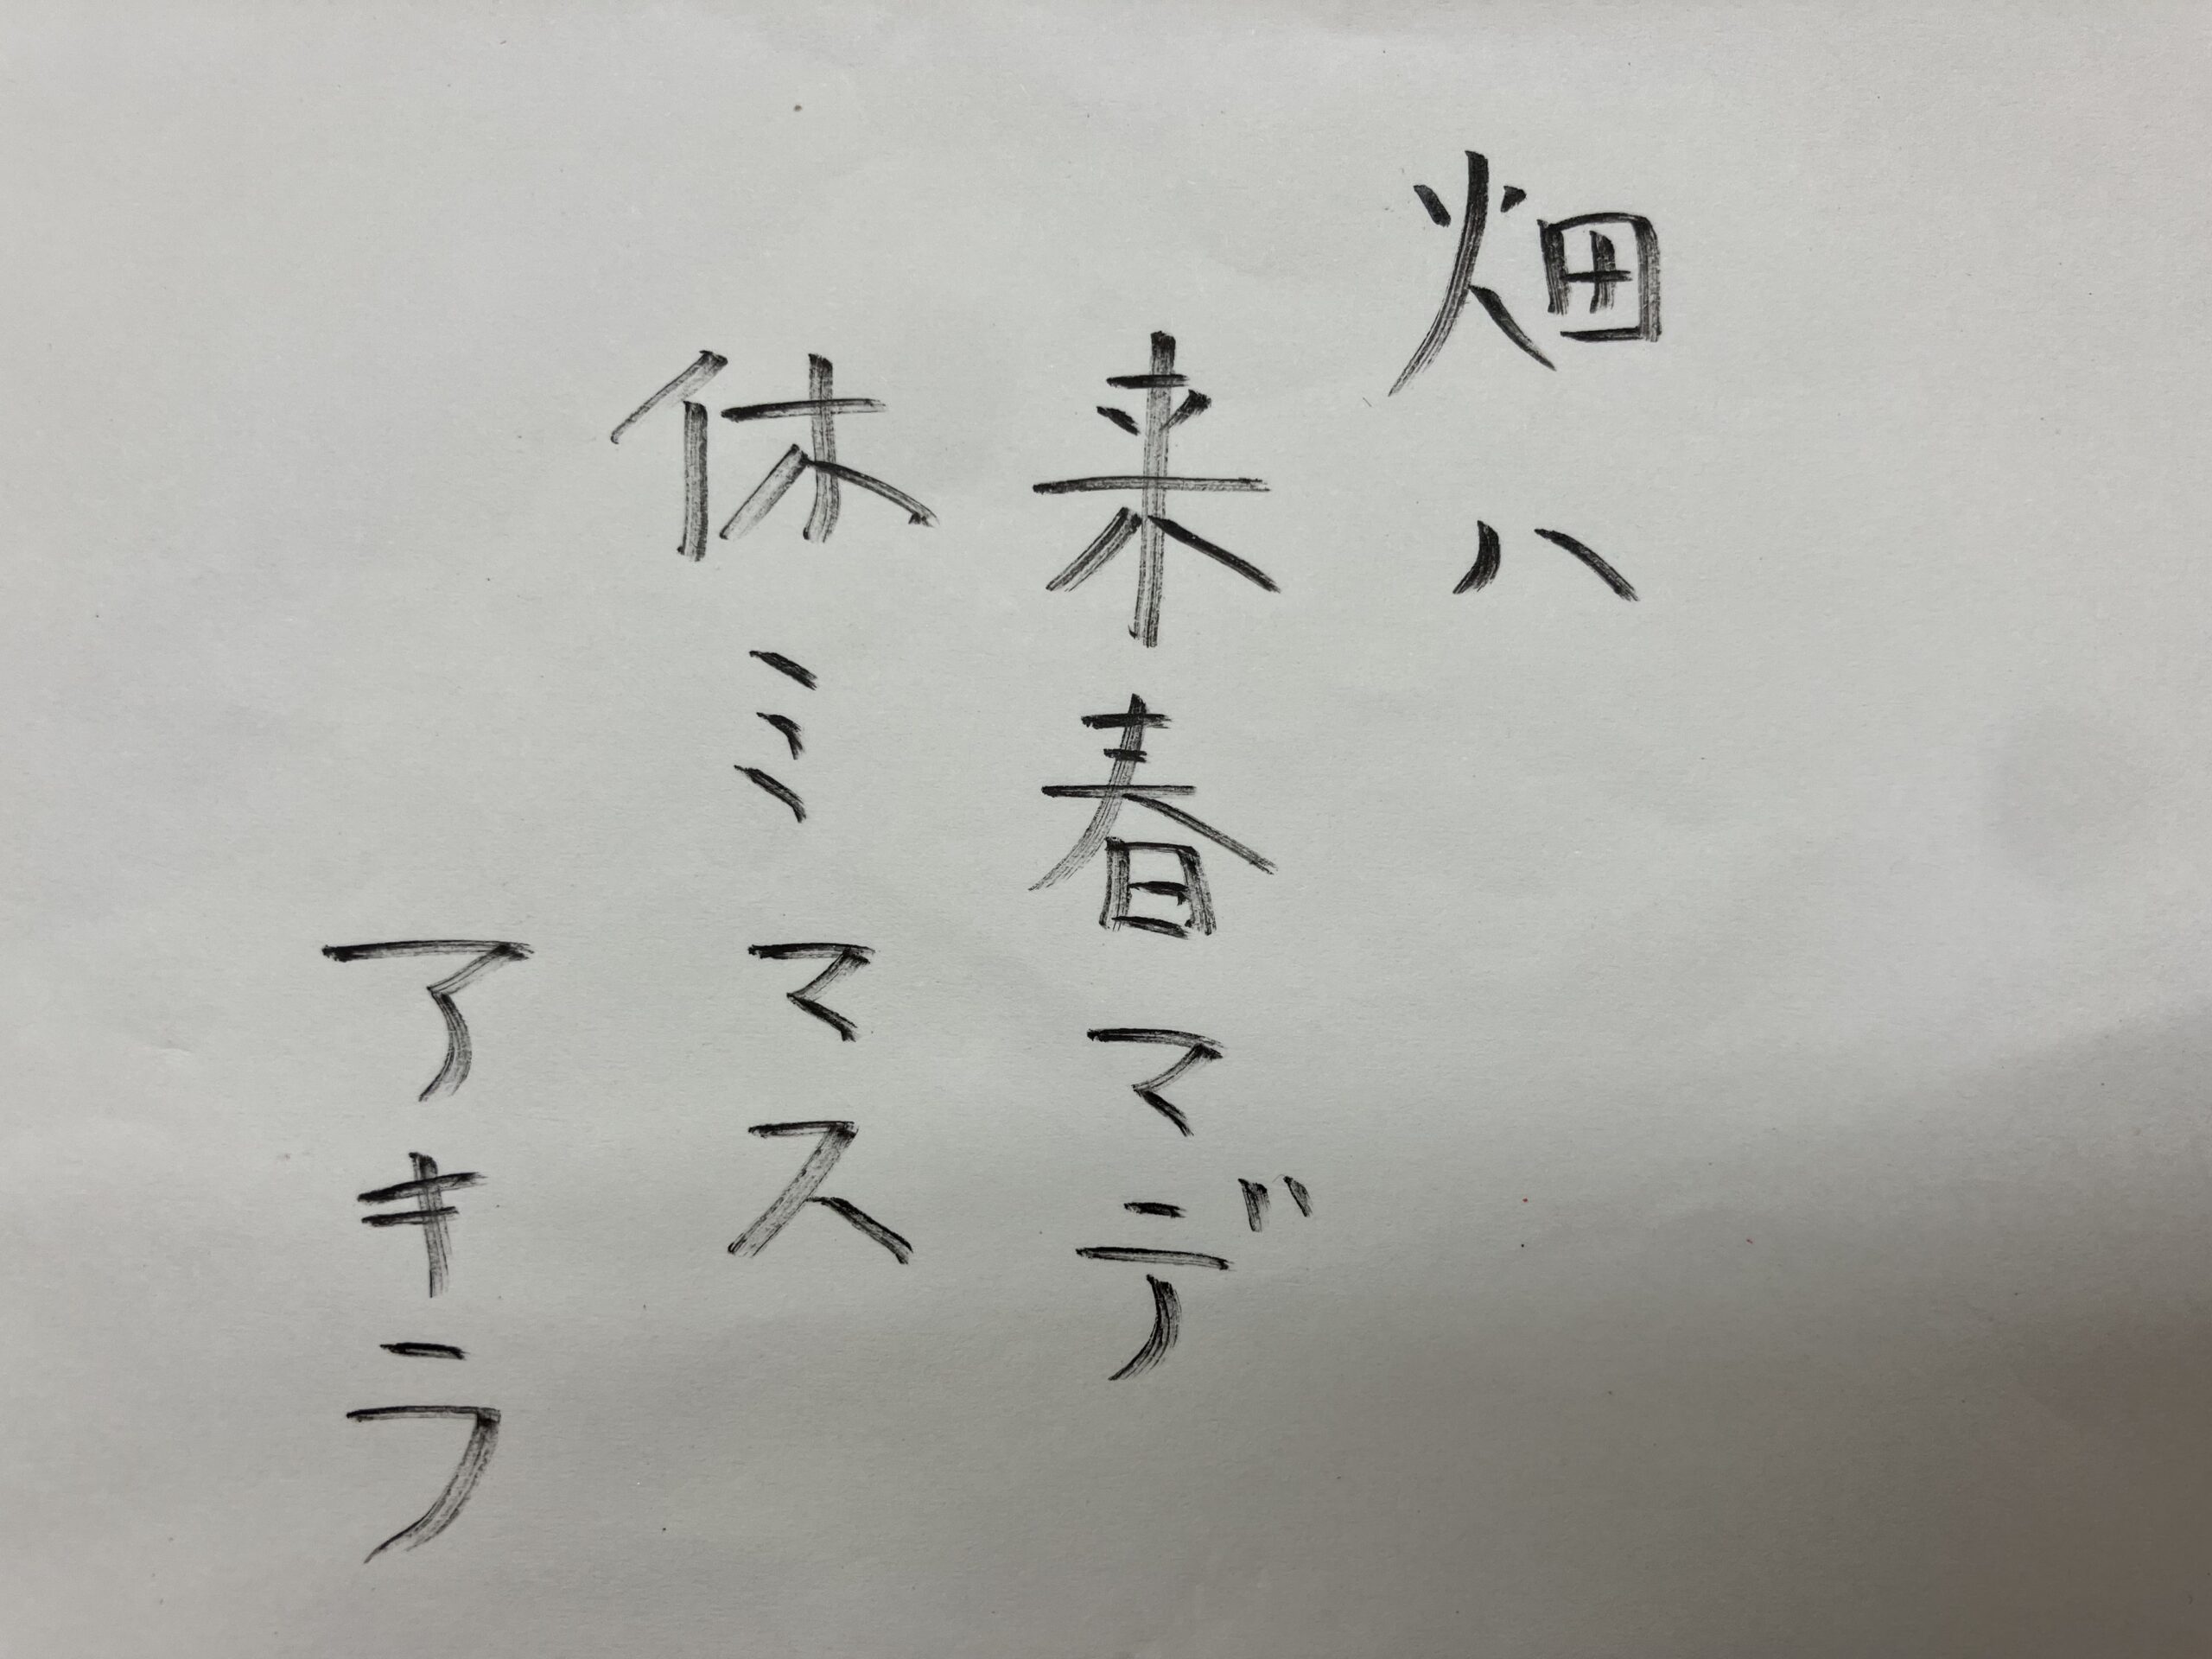 畑ハ
来春マデ
休ミマス
アキラ